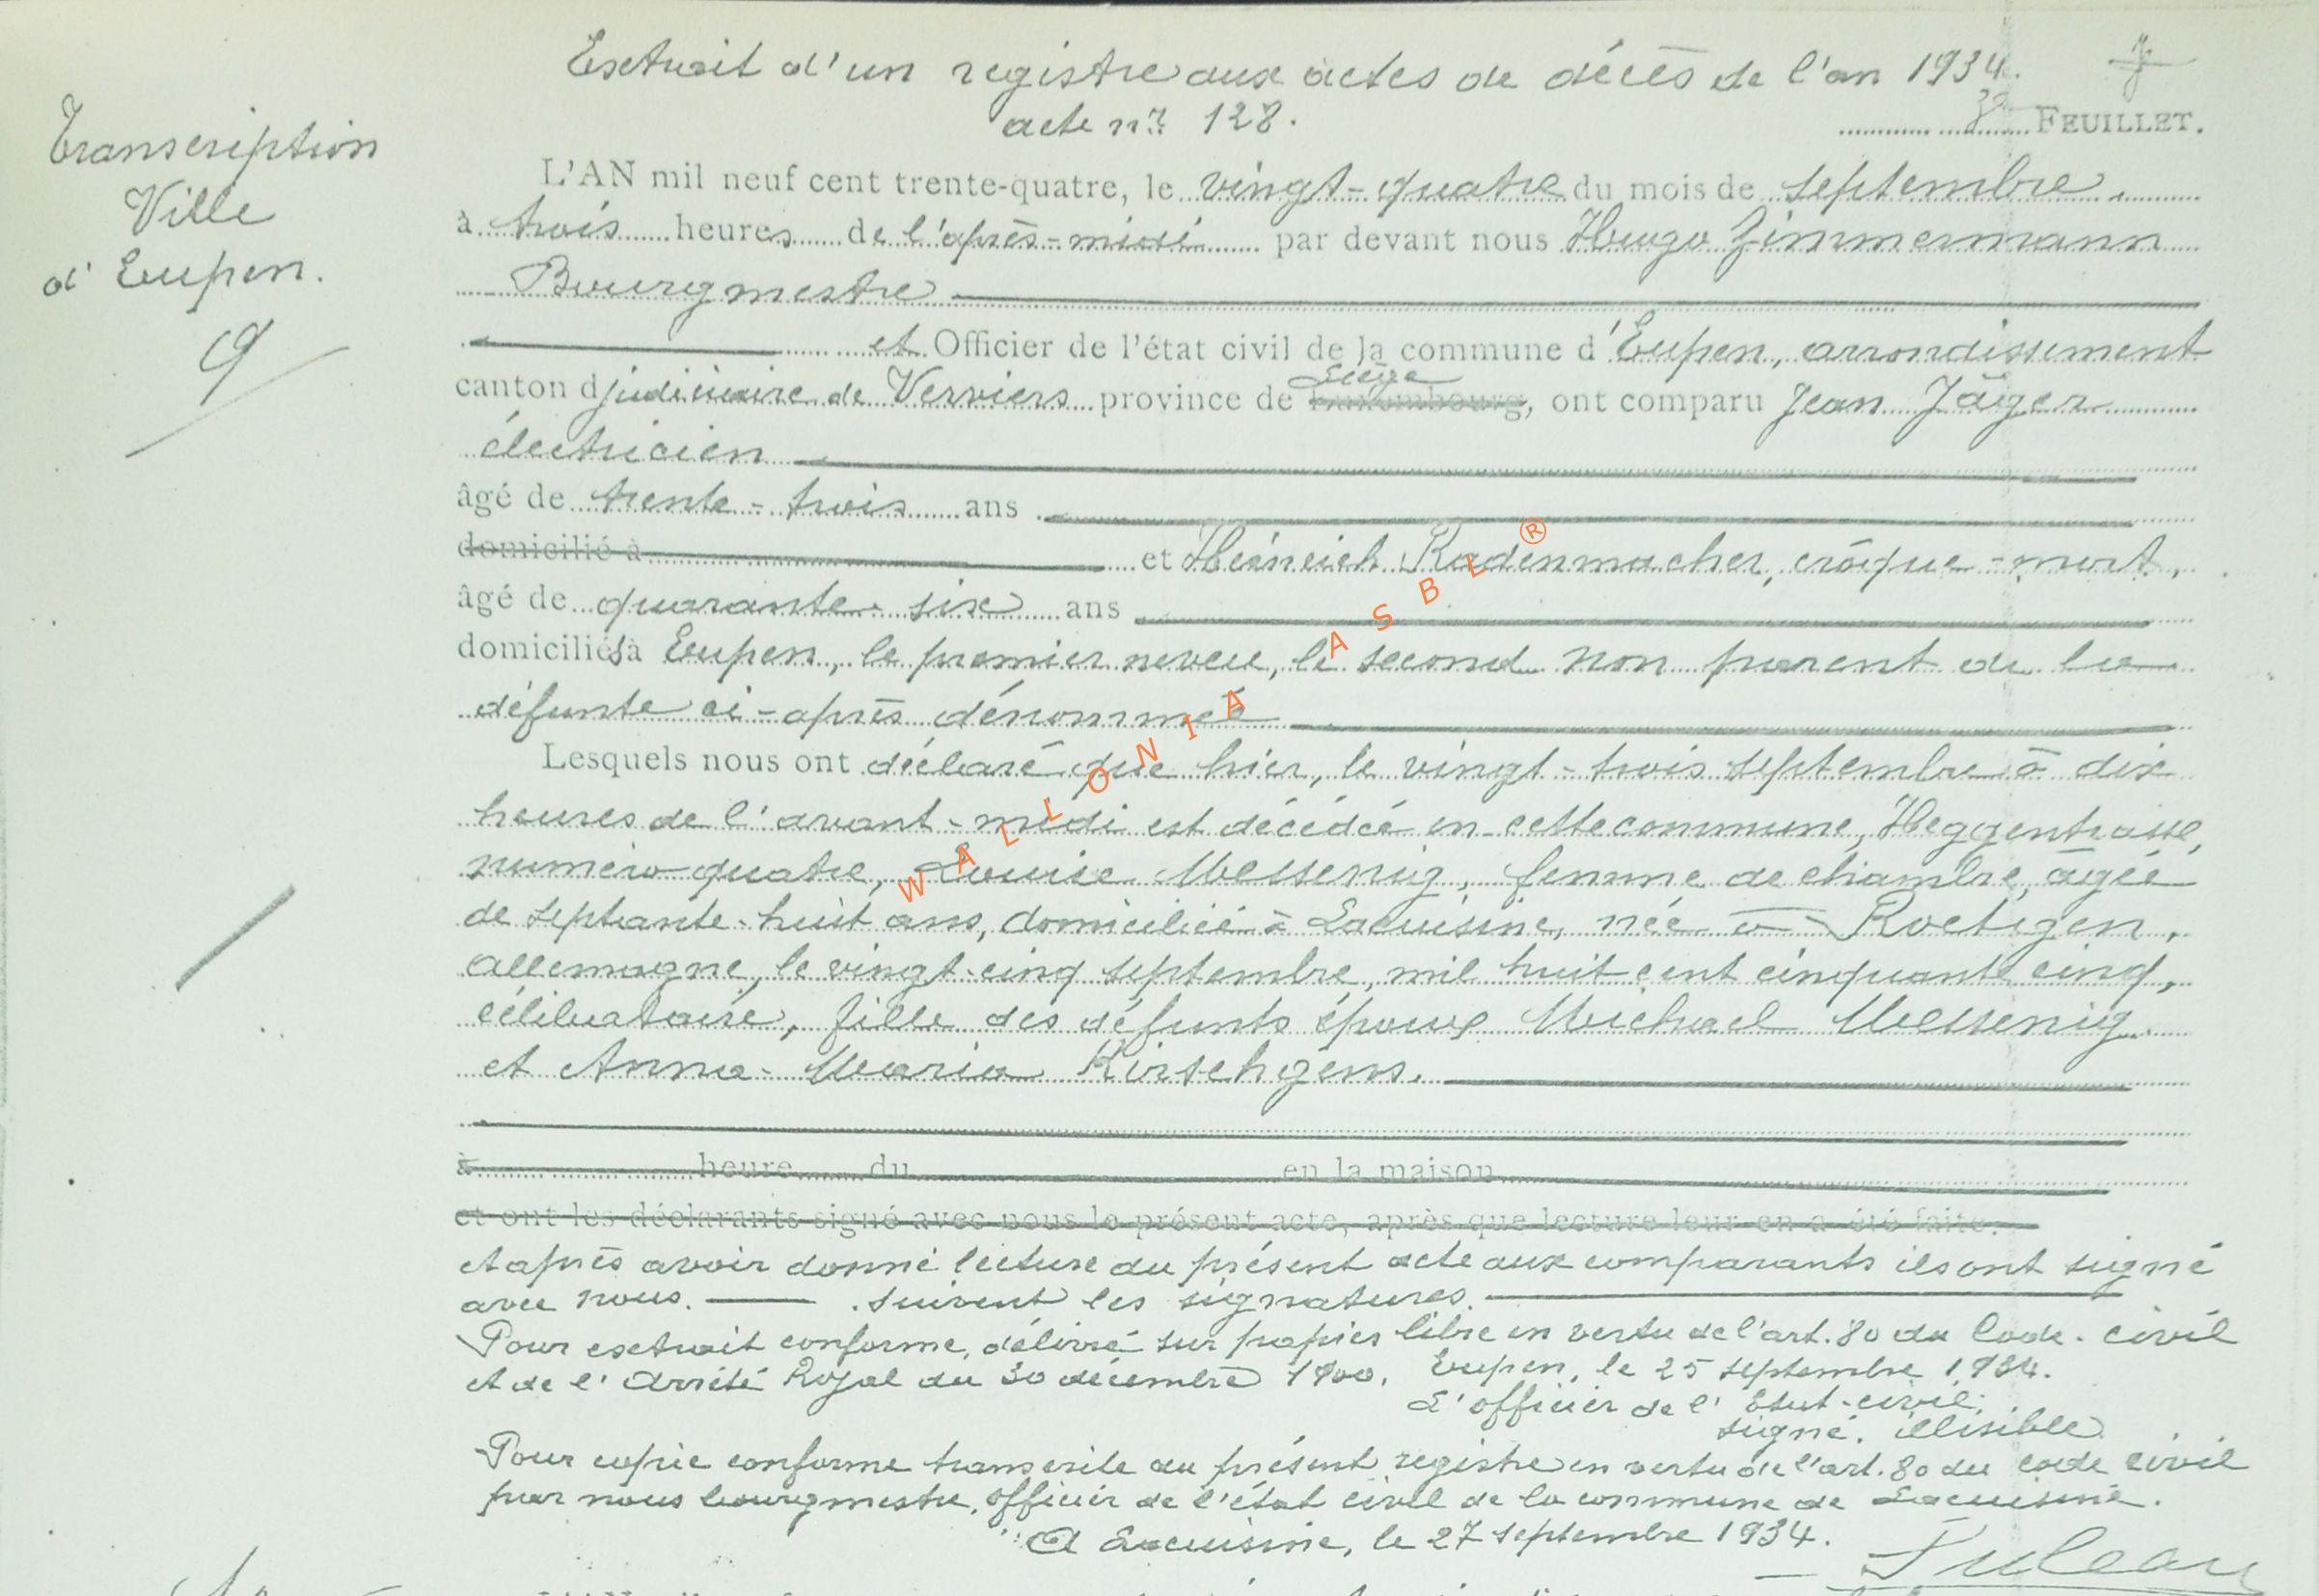 Extrait d'un registre aux actes de décès de l'an 1934.
acte n° 128.
FEUILLET.
Transcription
Ville
d'Eupen.
9
L'AN mil neuf cent trente-quatre, le vingt-quatre du mois de septembre
à trois heures de l'après-midi par devant nous Hugo Zimmermann
Bourgmestre
et Officier de l'état civil de la commune d'Eupen, arrondissement
canton d judiciaire de Verviers province de Liège Luxembourg, ont comparu Jean Jäger
électricien
âgé de trente-trois ans
domicilié à et Heinrich Radenmacher, croque-mort,
âgé de quarante-six ans
domiciliés à Eupen, le premier neveu, le second non parent de la
défunte ci-après dénommée
Lesquels nous ont déclaré que hier, le vingt-trois septembre à dix
heures de l'avant-midi est décédée en cette commune, Heggenstrasse,
numéro quatre, Louise Messenig, femme de chambre, âgée
de septante-huit ans, domiciliée à Lacuisine, née à Roetgen,
Allemagne, le vingt-cinq septembre, mil huit cent cinquante cinq,
célibataire, fille des défunts époux Michael Messenig
et Anna-Maria Kirschgens.
à heure du en la maison
et ont les déclarants signé avec nous le présent acte, après que lecture leur en a été faite.
et après avoir donné lecture du présent acte aux comparants ils ont signé
avec nous. suivent les signatures.
Pour extrait conforme, délivré sur papier libre en vertu de l'art. 80 du Code civil
et de l'Arrêté Royal du 30 décembre 1900. Eupen, le 25 septembre 1934.
L'officier de l'Etat-civil:
signé. illisible
Pour copie conforme transcrite au présent registre en vertu de l'art. 80 du code civil
par nous bourgmestre, officier de l'état civil de la commune de Lacuisine.
A Lacuisine, le 27 septembre 1934.
WALLONIA ASBL ®